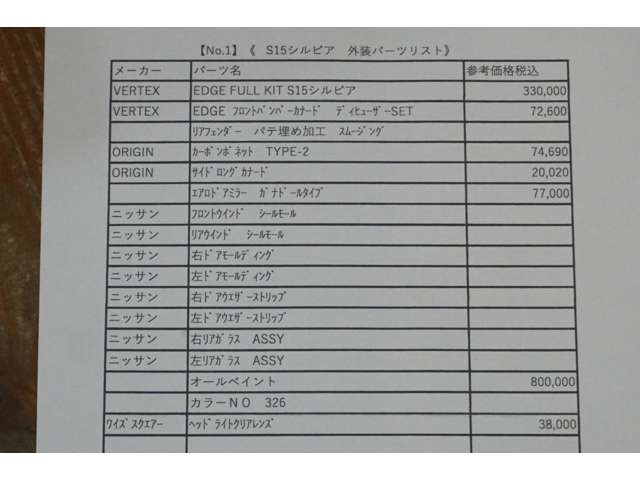 【No.1】《　S15シルビア　外装パーツリスト》
メーカー　パーツ名　参考価格税込
VERTEX　EDGE FULL KIT S15シルビア　330,000
VERTEX　EDGE ﾌﾛﾝﾄﾊﾞﾝﾊﾟｰｶﾅｰﾄﾞ　ﾃﾞｨﾋｭｰｻﾞｰSET　72,600
ﾘｱﾌｪﾝﾀﾞｰ　パテ埋め加工　ｽﾑｰｼﾞﾝｸﾞ
ORIGIN　ｶｰﾎﾞﾝﾎﾞﾈｯﾄ　TYPE-2　74,690
ORIGIN　ｻｲﾄﾞﾛﾝｸﾞｶﾅｰﾄﾞ　20,020
ｴｱﾛﾄﾞｱﾐﾗｰ　ｶﾞﾅﾄﾞｰﾙﾀｲﾌﾟ　77,000
ニッサン　ﾌﾛﾝﾄｳｲﾝﾄﾞ　ｼｰﾙﾓｰﾙ
ニッサン　ﾘｱｳｲﾝﾄﾞ　ｼｰﾙﾓｰﾙ
ニッサン　右ﾄﾞｱﾓｰﾙﾃﾞｨﾝｸﾞ
ニッサン　左ﾄﾞｱﾓｰﾙﾃﾞｨﾝｸﾞ
ニッサン　右ﾄﾞｱｳｴｻﾞｰｽﾄﾘｯﾌﾟ
ニッサン　左ﾄﾞｱｳｴｻﾞｰｽﾄﾘｯﾌﾟ
ニッサン　右ﾘｱｶﾞﾗｽ　ASSY
ニッサン　左ﾘｱｶﾞﾗｽ　ASSY
オールペイント　800,000
カラーＮＯ　326
ﾜｲｽﾞｽｸｴｱｰ　ﾍｯﾄﾞﾗｲﾄｸﾘｱﾚﾝｽﾞ　38,000